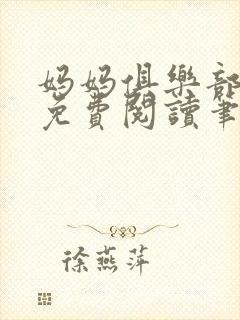 妈妈俱樂部
免費閱讀筆
徐燕萍